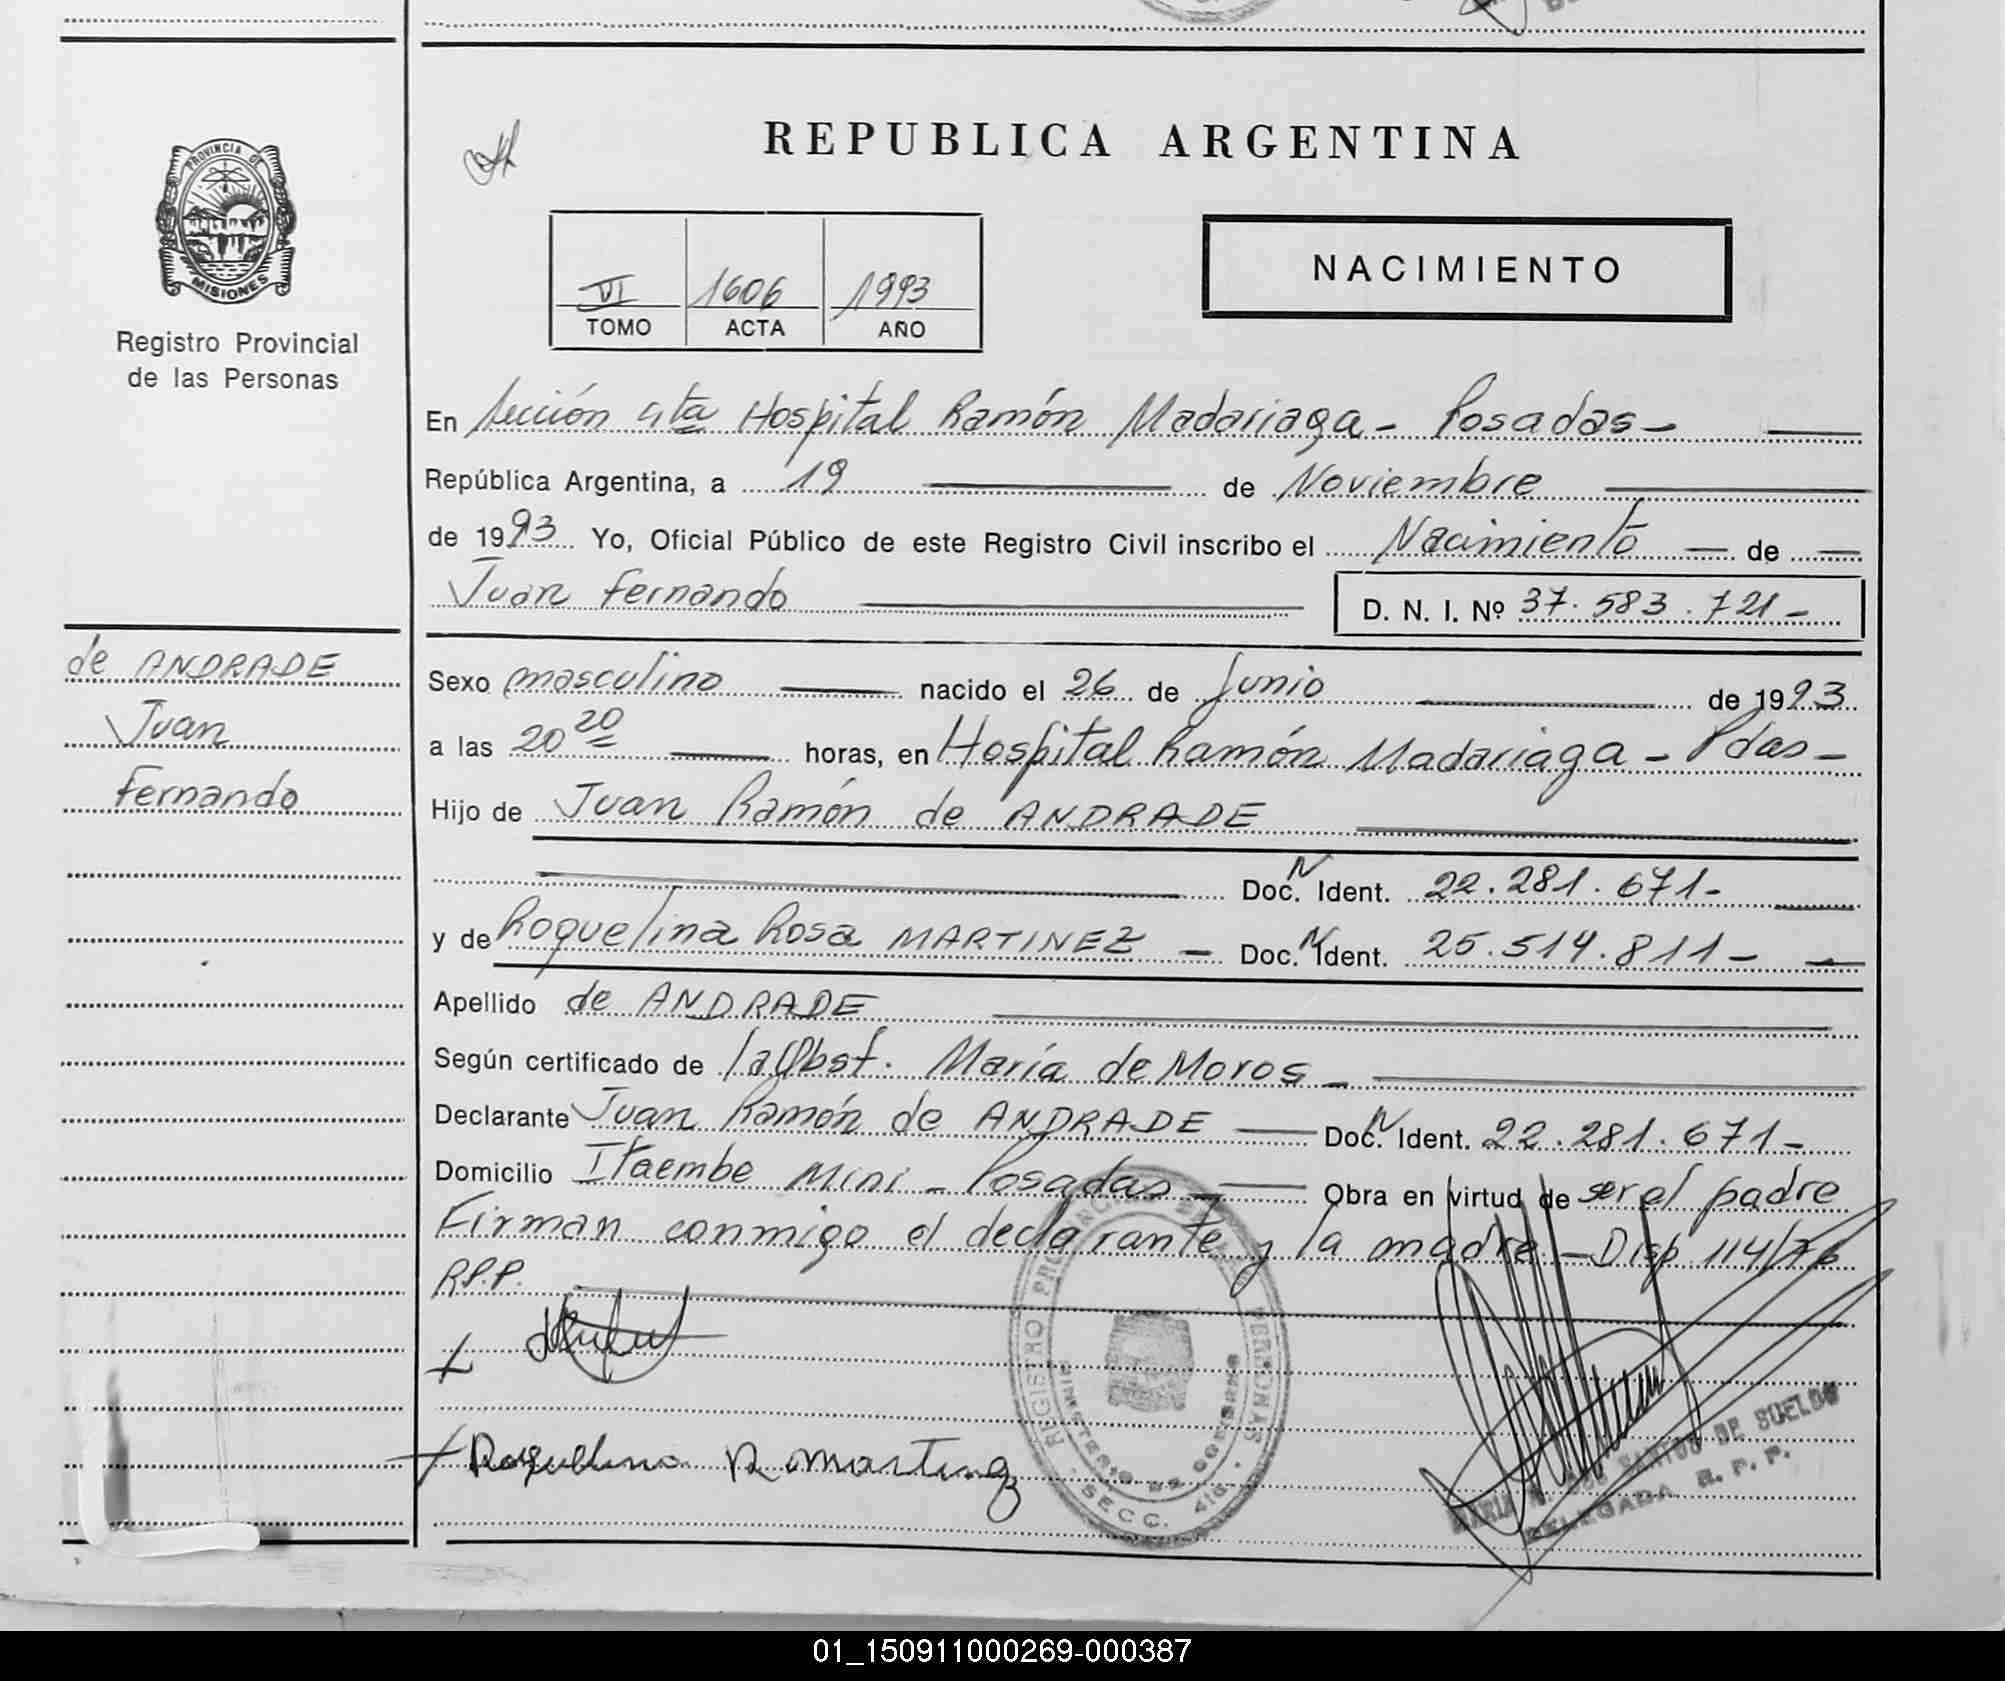 REPUBLICA ARGENTINA
PROVINCIA DE
MISIONES
Registro Provincial
de las Personas
VI 1606 1993
TOMO ACTA AÑO
NACIMIENTO
En Sección 4ta Hospital Ramón Madariaga - Posadas -
República Argentina, a 19 de Noviembre
de 1993 Yo, Oficial Público de este Registro Civil inscribo el Nacimiento de
Juan Fernando D. N. I. Nº 37.583.721-
de ANDRADE
Juan
Fernando
Sexo masculino nacido el 26 de Junio de 1993
a las 20 20 horas, en Hospital Ramón Madariaga - Pdas -
Hijo de Juan Ramón de ANDRADE
Doc. N Ident. 22.281.671-
y de Roquelina Rosa MARTINEZ - Doc. N Ident. 25.514.811-
Apellido de ANDRADE
Según certificado de la Obst. María de Moros -
Declarante Juan Ramón de ANDRADE Doc. N Ident. 22.281.671-
Domicilio Itaembe Mini - Posadas - Obra en virtud de ser el padre
Firman conmigo el declarante y la madre - Disp 114/76
R.P.P.
Roquelina R Martinez
REGISTRO PROVINCIAL DE LAS PERSONAS
MINISTERIO DE GOBIERNO
SECC. 4ta.
MARIA DOS SANTOS DE SUELDO
DELEGADA R. P. P.
01_150911000269-000387